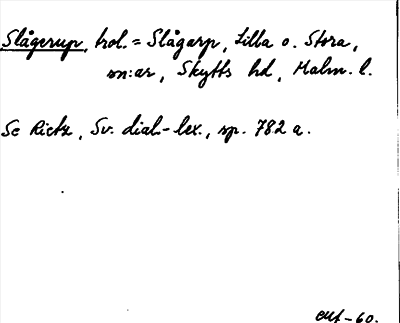 Slågerup, trol. = Slågarp, Lilla o. Stora,
sn:ar, Skytts hd, Malm. l.
Se Rietz, Sv. dial.-lex., sp. 782 a.
-60.